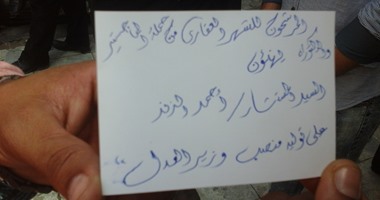 المرشحون للشهر العقارى من حملة الماجستير
والدكتوراه يهنئون
السيد المستشار / أحمد الزند
على توليه منصب وزير العدل